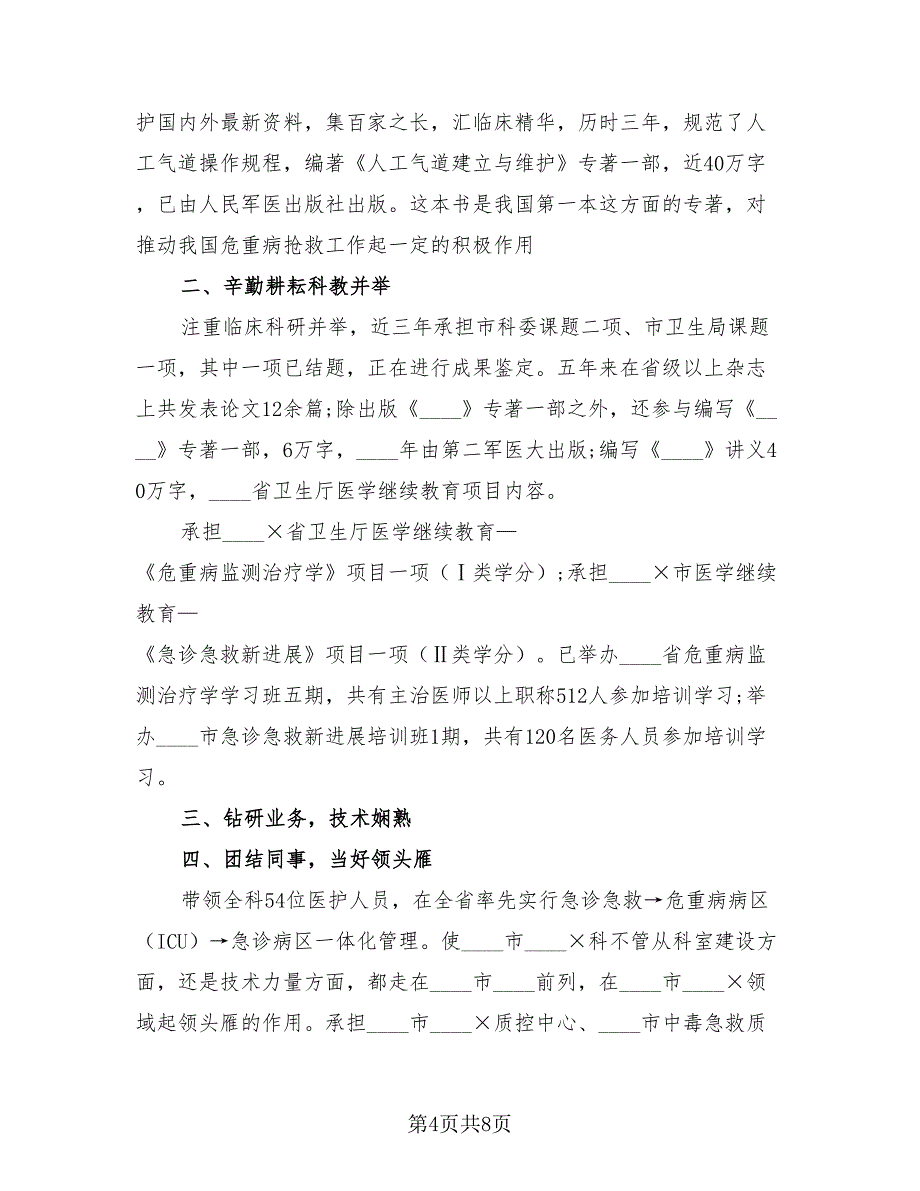 护国内外最新资料，集百家之长，汇临床精华，历时三年，规范了人
工气道操作规程，编著《人工气道建立与维护》专著一部，近40万字
，已由人民军医出版社出版。这本书是我国第一本这方面的专著，对
推动我国危重病抢救工作起一定的积极作用
二、辛勤耕耘科教并举
注重临床科研并举，近三年承担市科委课题二项、市卫生局课题
一项，其中一项已结题，正在进行成果鉴定。五年来在省级以上杂志
上共发表论文12余篇;除出版《____》专著一部之外，还参与编写《__
__》专著一部，6万字，____年由第二军医大出版;编写《____》讲义4
0万字，____省卫生厅医学继续教育项目内容。
承担____×省卫生厅医学继续教育—
《危重病监测治疗学》项目一项（Ⅰ类学分）;承担____×市医学继续
教育—
《急诊急救新进展》项目一项（Ⅱ类学分）。已举办____省危重病监
测治疗学学习班五期，共有主治医师以上职称512人参加培训学习;举
办____市急诊急救新进展培训班1期，共有120名医务人员参加培训学
习。
三、钻研业务，技术娴熟
四、团结同事，当好领头雁
带领全科54位医护人员，在全省率先实行急诊急救→危重病病区
（ICU）→急诊病区一体化管理。使____市____×科不管从科室建设方
面，还是技术力量方面，都走在____市____前列，在____市____×领
域起领头雁的作用。承担____市____×质控中心、____市中毒急救质
第4页共8页